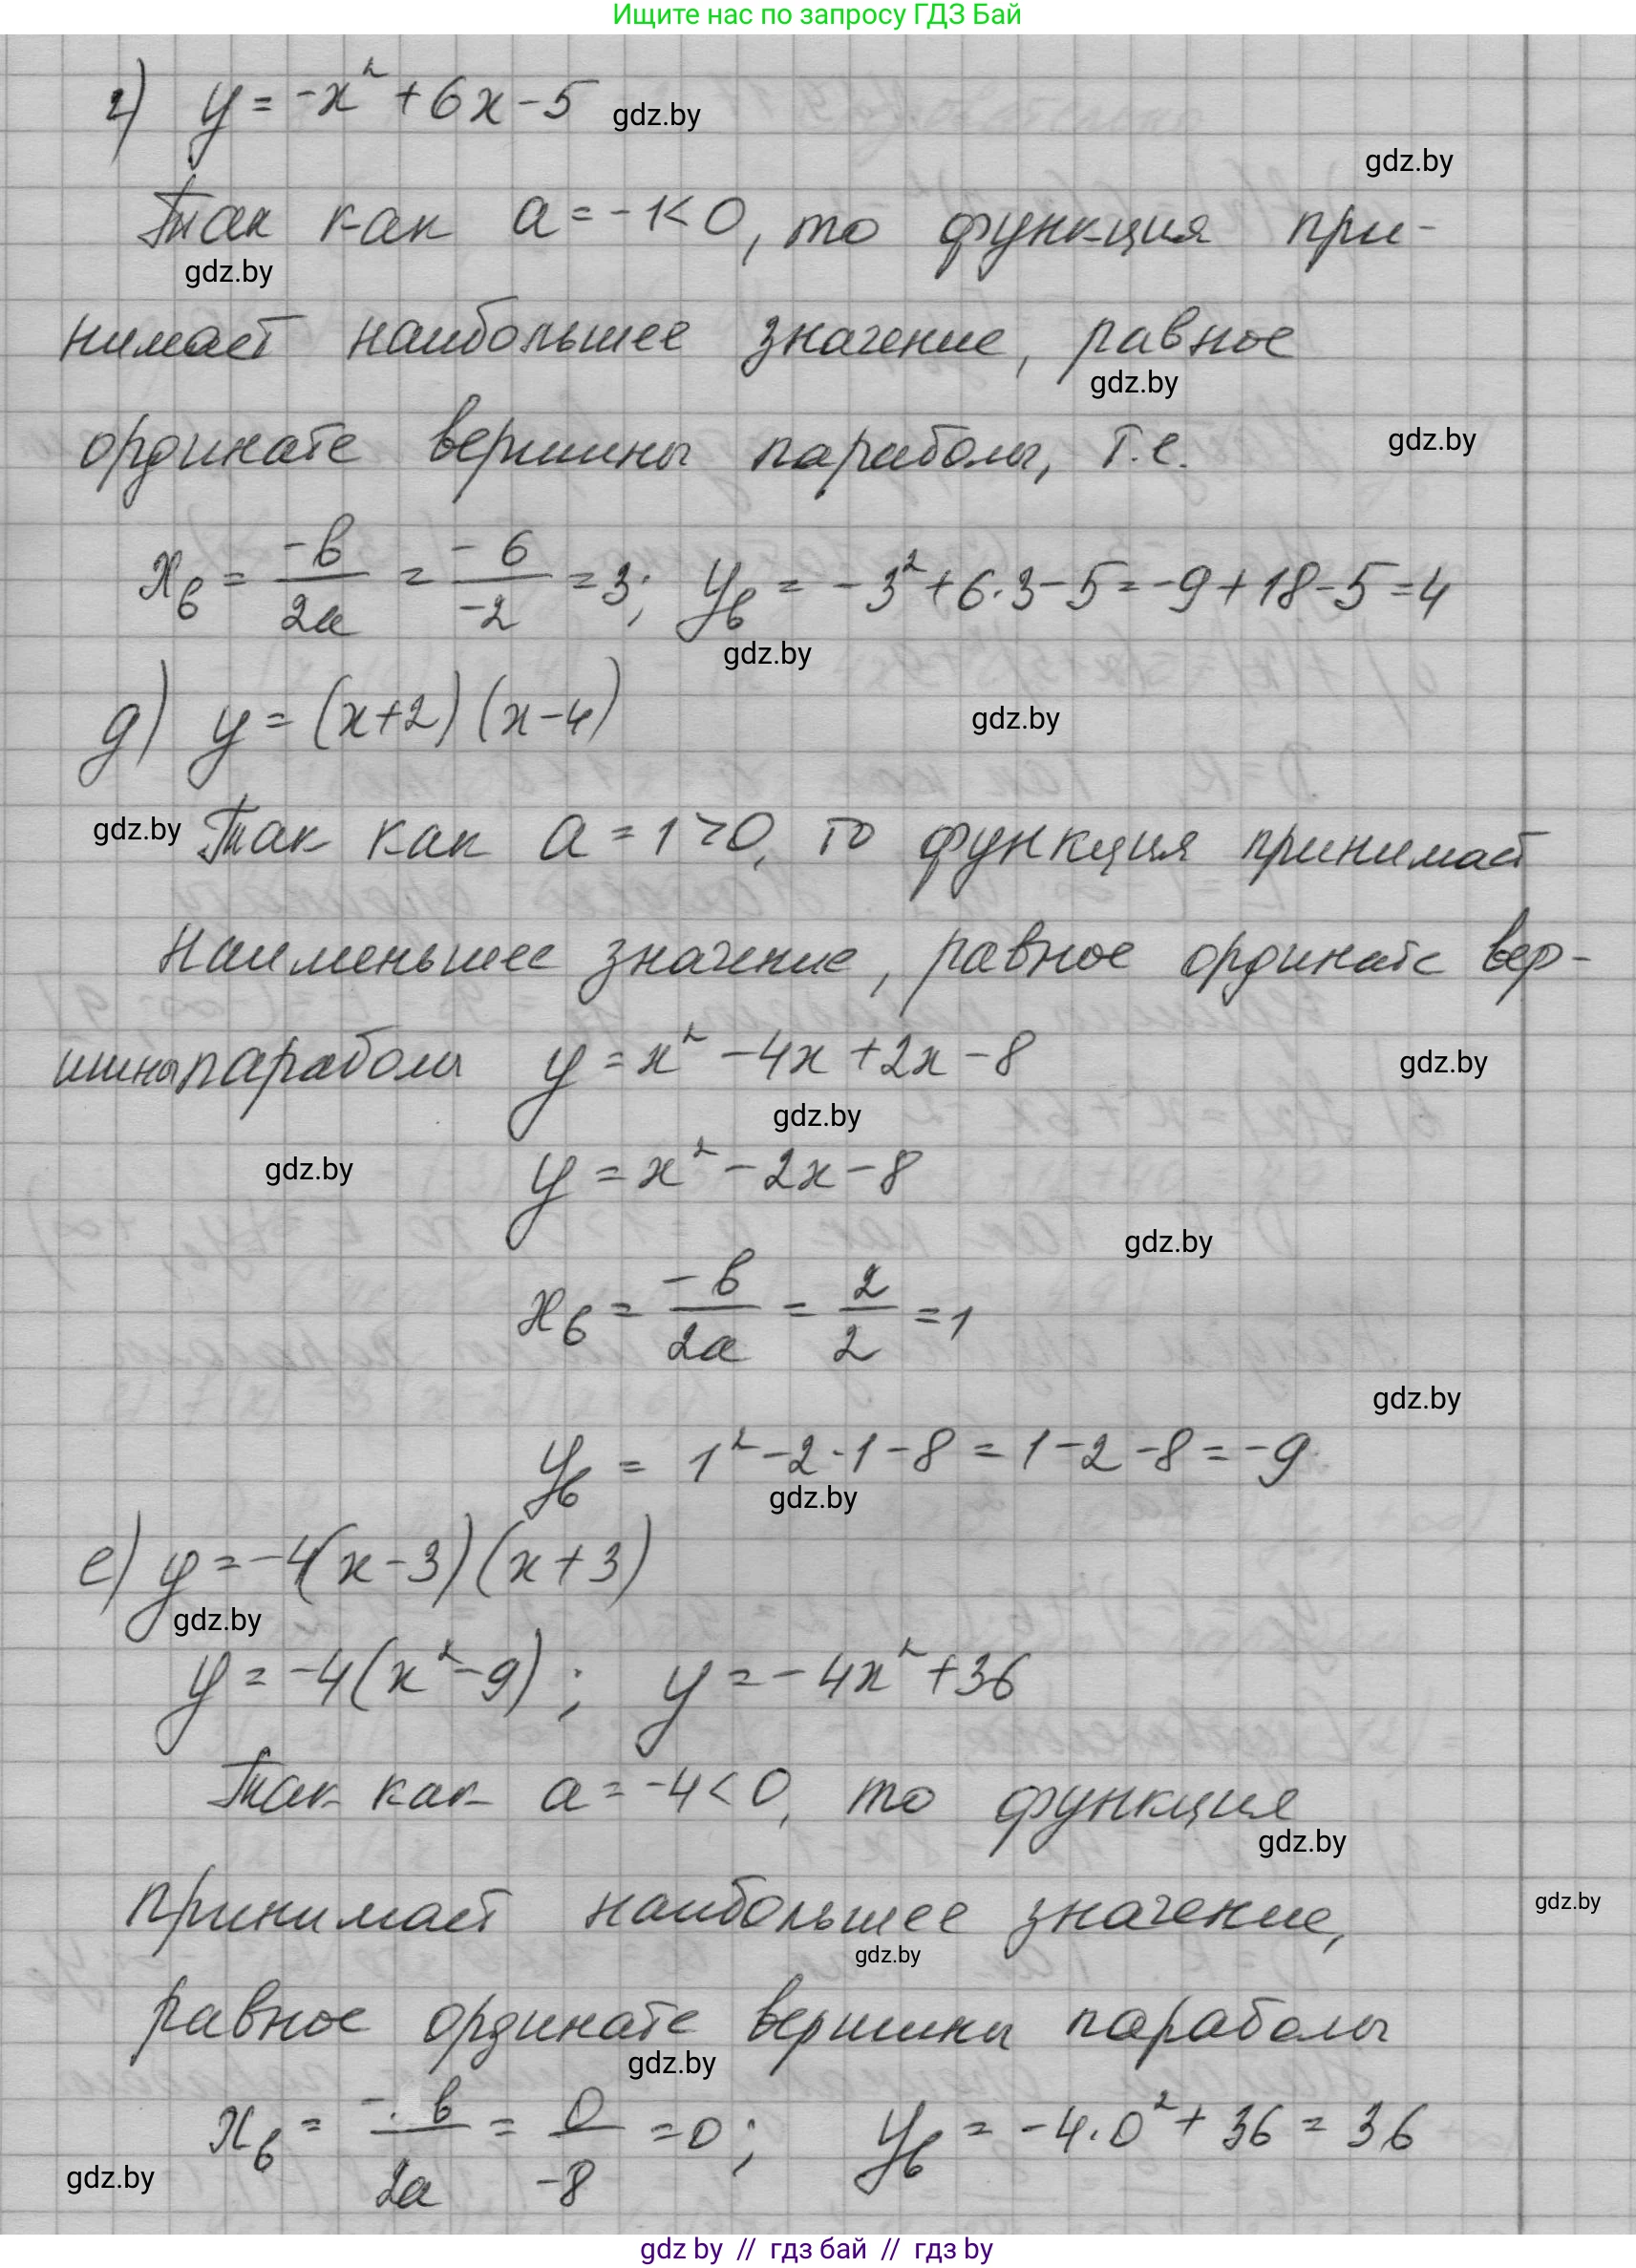 Ищите нас по запросу ГДЗ Бай
г) y = -x² + 6x - 5 gdz.by
gdz.by
Так как a = -1 < 0, то функция при-
gdz.by
нимает наибольшее значение, равное
gdz.by
ординате вершины параболы, т.е. gdz.by
x_в = -b/2a = -6/-2 = 3; y_в = -3² + 6·3 - 5 = -9 + 18 - 5 = 4
gdz.by
д) y = (x+2)(x-4) gdz.by
gdz.by Так как a = 1 > 0, то функция принимает
наименьшее значение, равное ординате вер-
шины параболы y = x² - 4x + 2x - 8 gdz.by
gdz.by
gdz.by y = x² - 2x - 8
gdz.by
x_в = -b/2a = 2/2 = 1
gdz.by
y_в = 1² - 2·1 - 8 = 1 - 2 - 8 = -9
gdz.by
е) y = -4(x-3)(x+3)
gdz.by
y = -4(x² - 9); y = -4x² + 36
Так как a = -4 < 0, то функция
gdz.by
принимает наибольшее значение, gdz.by
gdz.by
равное ординате вершины параболы
gdz.by
x_в = -b/2a = 0/-8 = 0; y_в = -4·0² + 36 = 36
gdz.by
gdz by // гдз бай // гдз by